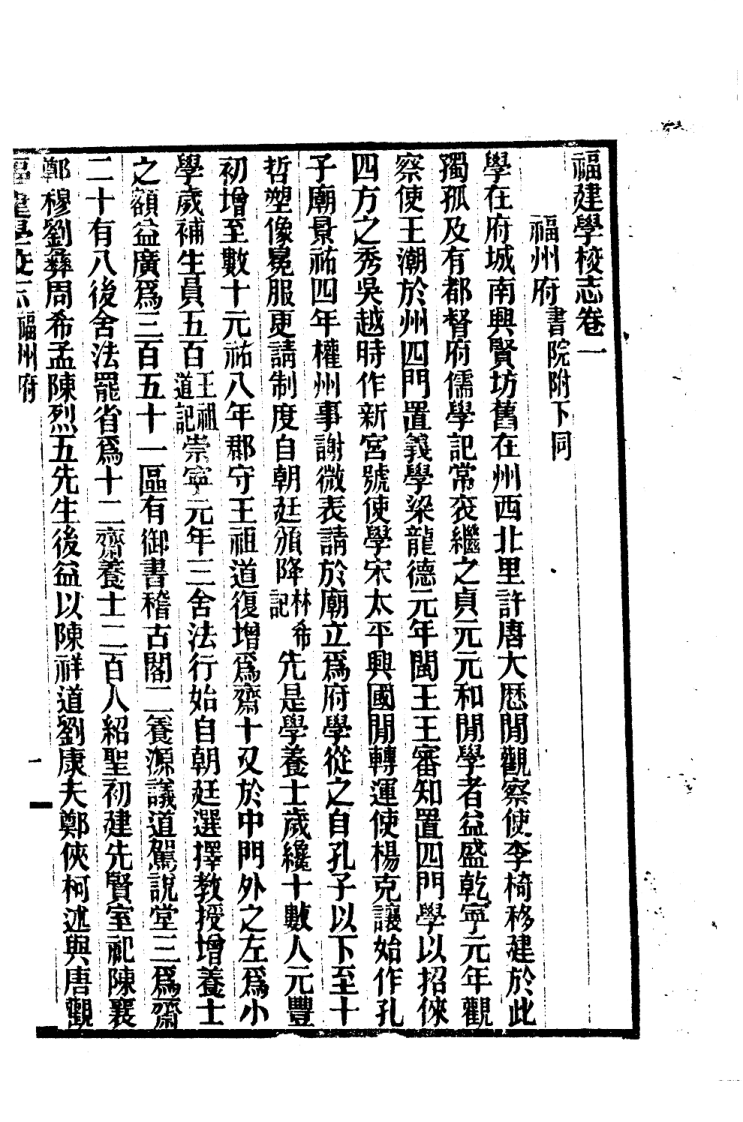 福建學校志卷一
福州府書院附下同
學在府城南興賢坊舊在州西北里許唐大厯閒觀察使李椅移建於此
獨孤及有都督府儒學記常衮繼之貞元元和閒學者益盛乾寧元年觀
察使王潮於州四門置義學梁龍德元年閩王王審知置四門學以招倈
四方之秀吳越時作新宮號使學宋太平興國閒轉運使楊克讓始作孔
子廟景祐四年權州事謝微表請於廟立為府學從之自孔子以下至十
哲塑像冕服更請制度自朝廷頒降林希記先是學養士歲纔十數人元豐
初增至數十元祐八年郡守王祖道復增為齋十又於中門外之左為小
學歲補生員五百王祖道記崇寧元年三舍法行始自朝廷選擇教授增養士
之額益廣為三百五十一區有御書稽古閣二養源議道駕說堂三為齋
二十有八後舍法罷省為十二齋養士二百人紹聖初建先賢室祀陳襄
鄭穆劉彝周希孟陳烈五先生後益以陳祥道劉康夫鄭俠柯述與唐觀
福建學校志 福州府
一